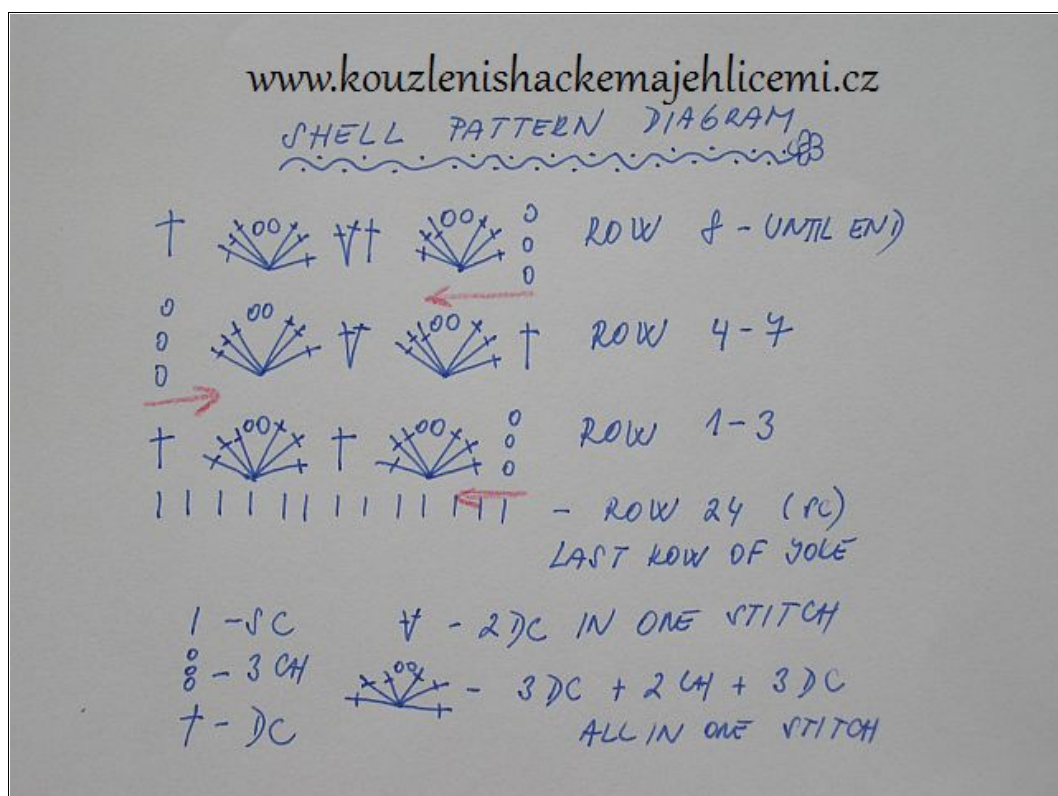 www.kouzlenishackemajehlicemi.cz
SHELL PATTERN DIAGRAM
ROW 8 - UNTIL END
ROW 4 - 7
ROW 1 - 3
- ROW 24 (SC)
LAST ROW OF YOLE
- SC
- 2 DC IN ONE STITCH
- 3 CH
- 3 DC + 2 CH + 3 DC
ALL IN ONE STITCH
- DC